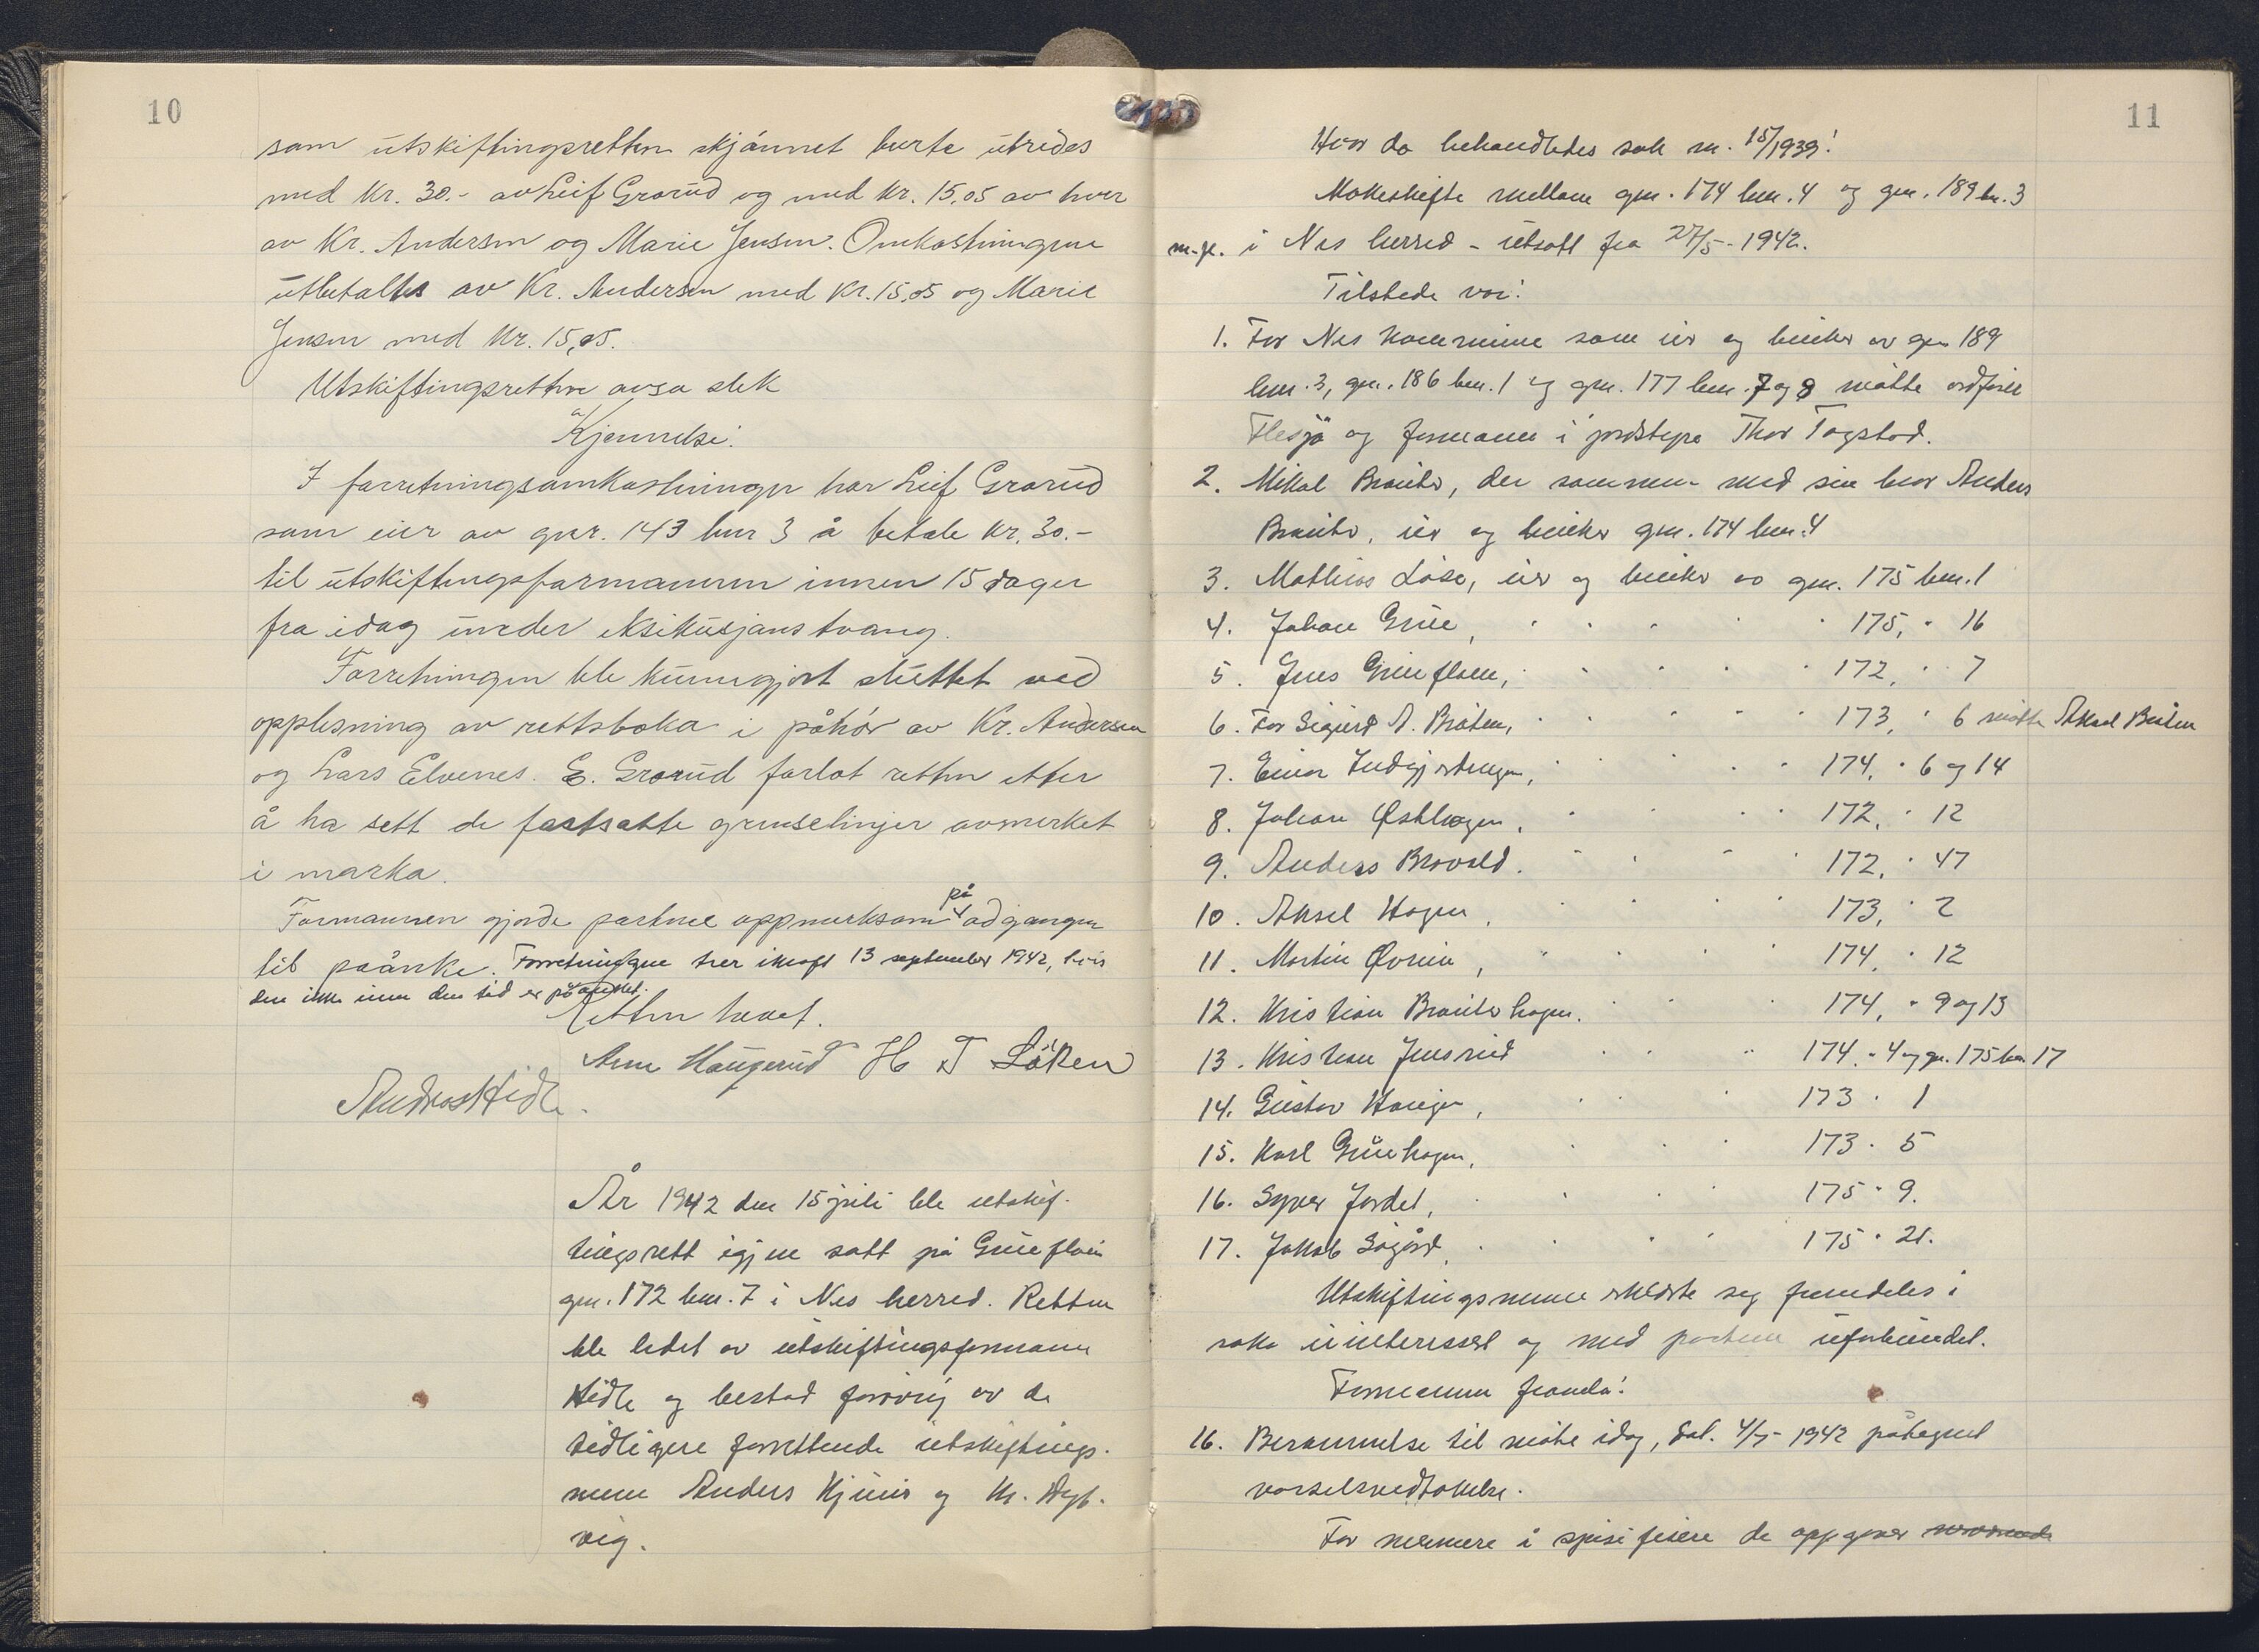 10
som utskiftingsretten skjønnet burte utredes
med kr. 30.- av Leif Grorud og med kr. 15,05 av hver
av Kr. Andersen og Marie Jensen. Omkostningene
utbetaltes av Kr. Andersen med kr. 15,05 og Marie
Jensen med kr. 15,05.
Utskiftingsretten avsa slik
Kjennelse:
I forretningsomkostninger har Leif Grorud
som eier av gnr. 143 bnr 3 å betale kr. 30.-
til utskiftingsformannen innen 15 dager
fra idag under eksikusjonstvang.
Forretningen ble kunngjort sluttet ved
opplesning av rettsboka i påhør av Kr. Andersen
og Lars Elvenes. E. Grorud forlot retten etter
å ha sett de fastsatte grenselinjer avmerket
i marka.
Formannen gjorde partene oppmerksom på adgangen
til påanke. Forretningen trer i kraft 13 september 1942, hvis
den ikke innen den tid er påanket.
Retten hevet.
Arne Haugerud H T Löken
Andreas Hidle.
År 1942 den 15 juli ble utskif-
tingsrett igjen satt på Grueflaen
gnr. 172 bnr. 7 i Nes herred. Retten
ble ledet av utskiftingsformann
Hidle og bestod forøvrig av de
tidligere forrettende utskiftings-
menn Anders Kjuus og Kr. Dyb-
vig.
11
Hvor da behandledes sak nr. 15/1939:
Makeskifte mellom gnr. 174 bnr. 4 og gnr. 189 bn. 3
m.fl. i Nes herred - utsatt fra 27/5- 1942.
Tilstede var:
1. For Nes kommune som eier og bruker av gnr 189
bnr. 3, gnr. 186 bnr. 1 og gnr. 177 bnr. 7 og 8 møtte ordfører
Flesjø og formann i jordstyre Thor Togstad.
2. Mikal Brauter, der sammen med sin bror Anders
Brauter, eier og bruker gnr. 174 bnr. 4
3. Mathias Låse, eier og bruker av gnr. 175 bnr. 1
4. Johan Grue, " " " " " 175, " 16
5. Jens Grueflaen, " " " " " 172, " 7
6. For Sigurd A. Bråten, " " " " " 173, " 6 møtte Aksel Bråten
7. Einar " " " " " 174, " 6 og 14
8. Johan Østhagen, " " " " 172, " 12
9. Anders Brovold. " " " " 172, " 47
10. Aksel Hagen, " " " " 173, " 2
11. Martin Øvrum, " " " " 174, " 12
12. Kristian Brauterhagen. " " " 174, " 9 og 13
13. Kristian Jensrud " " " 174, " 4 og gn. 175 bn. 17
14. Gustav Haugen, " " " 173 " 1
15. Karl Gruehagen, " " " 173 " 5
16. Syver Jordet, " " " " 175 " 9.
17. Jakob Sågård, " " " " 175 " 21.
Utskiftingsmenn erklærte seg fremdeles i
saka uinteressert og med partene uforbundet.
Formannen framla:
16. Berammelse til møte idag, dat. 4/7- 1942 påtegnet
varselsvedtakelse.
For nærmere å spesifisere de oppgaver